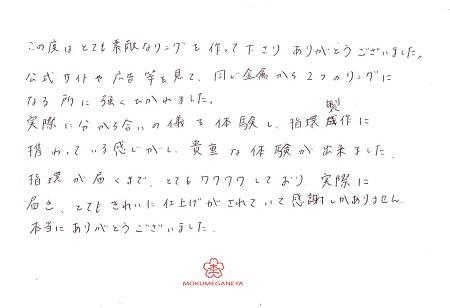 この度はとても素敵なリングを作って下さり ありがとうございました。
公式サイトや広告等を見て、同じ金属から2つのリングに
なる所に強くひかれました。
実際に分かち合いの儀を体験し、指環製作に
携わっている感じがし、貴重な体験が出来ました。
指環が届くまで、とてもワクワクしており 実際に
届き、とてもきれいに仕上げがされていて感謝しかありません。
本当にありがとうございました。
MOKUMEGANEYA